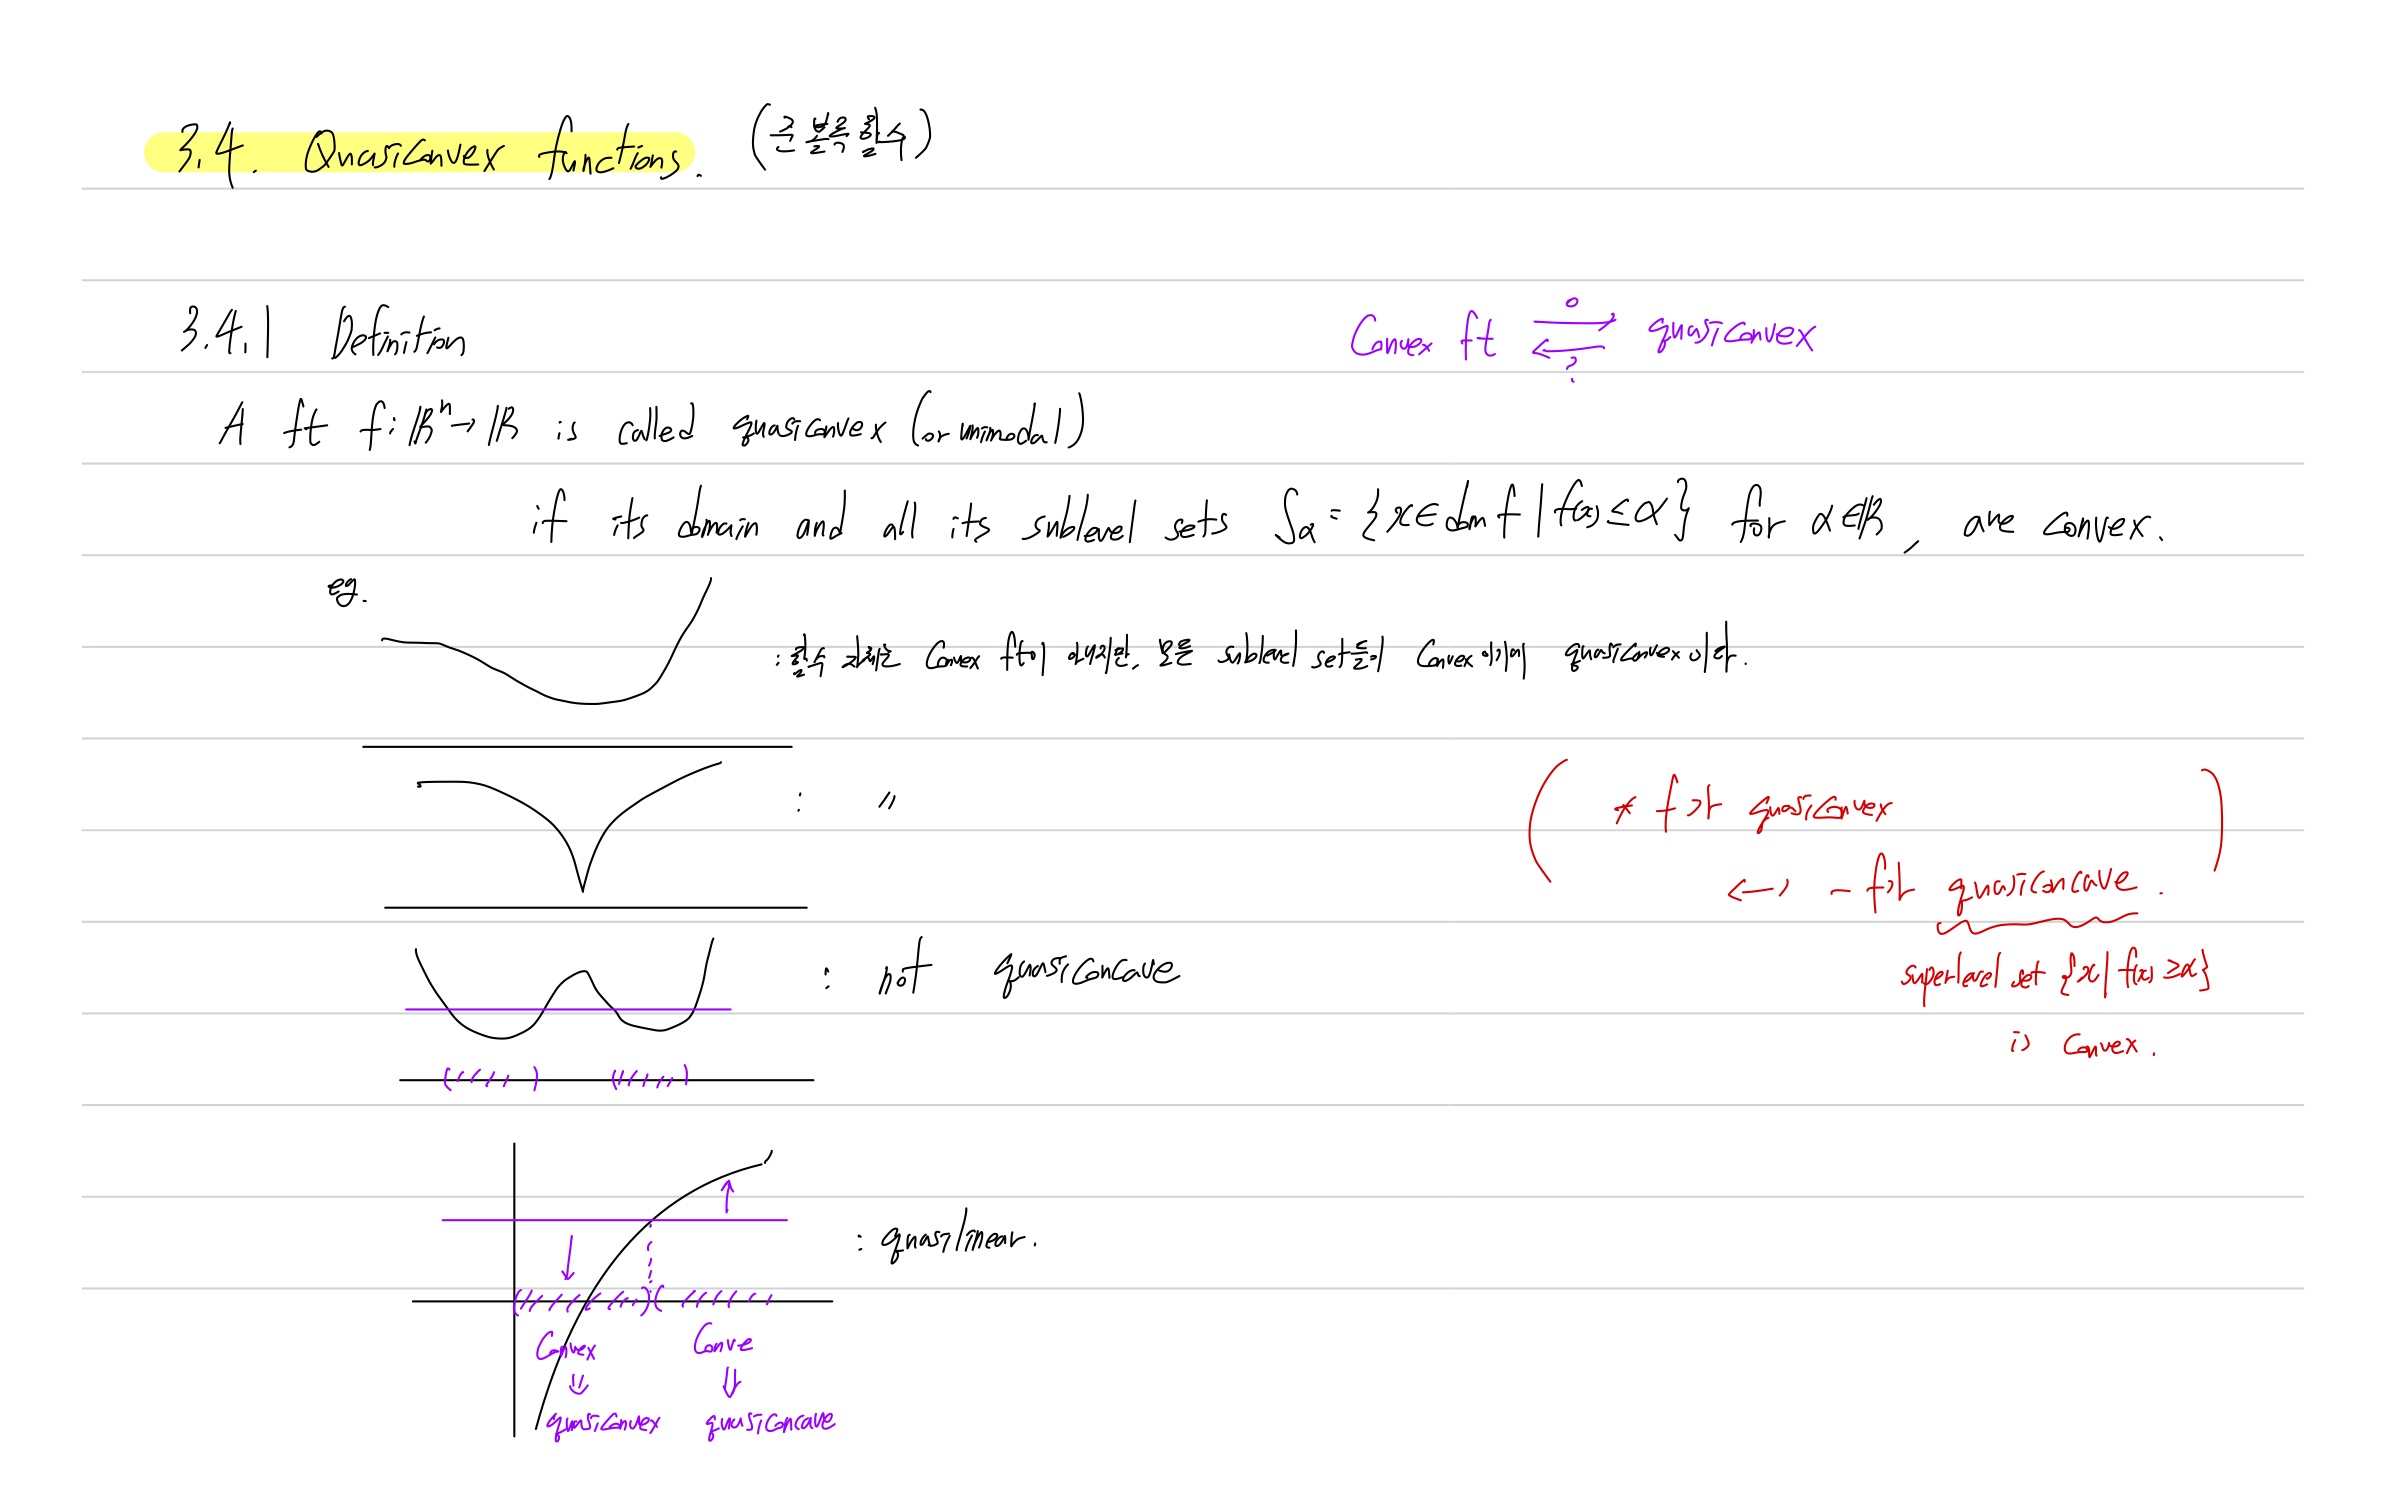 3.4. Quasiconvex functions. (준볼록함수)
3.4.1 Definition
Convex ft ⇄ quasiconvex
o
?
A ft f: ℝⁿ→ℝ is called quasiconvex (or unimodal)
if its domain and all its sublevel sets Sα = {x∈dom f | f(x) ≤ α} for α∈ℝ, are convex.
eg.
: 함수 자체는 Convex ft이 아니지만, 모든 sublevel set들이 Convex이기에 quasiconvex이다.
: 〃
* f가 quasiconvex
↔ -f가 quasiconcave.
superlevel set {x | f(x) ≥ α}
is Convex.
: not quasiconcave
: quasilinear.
Convex
⇓
quasiconvex
Conve
⇓
quasiconcave